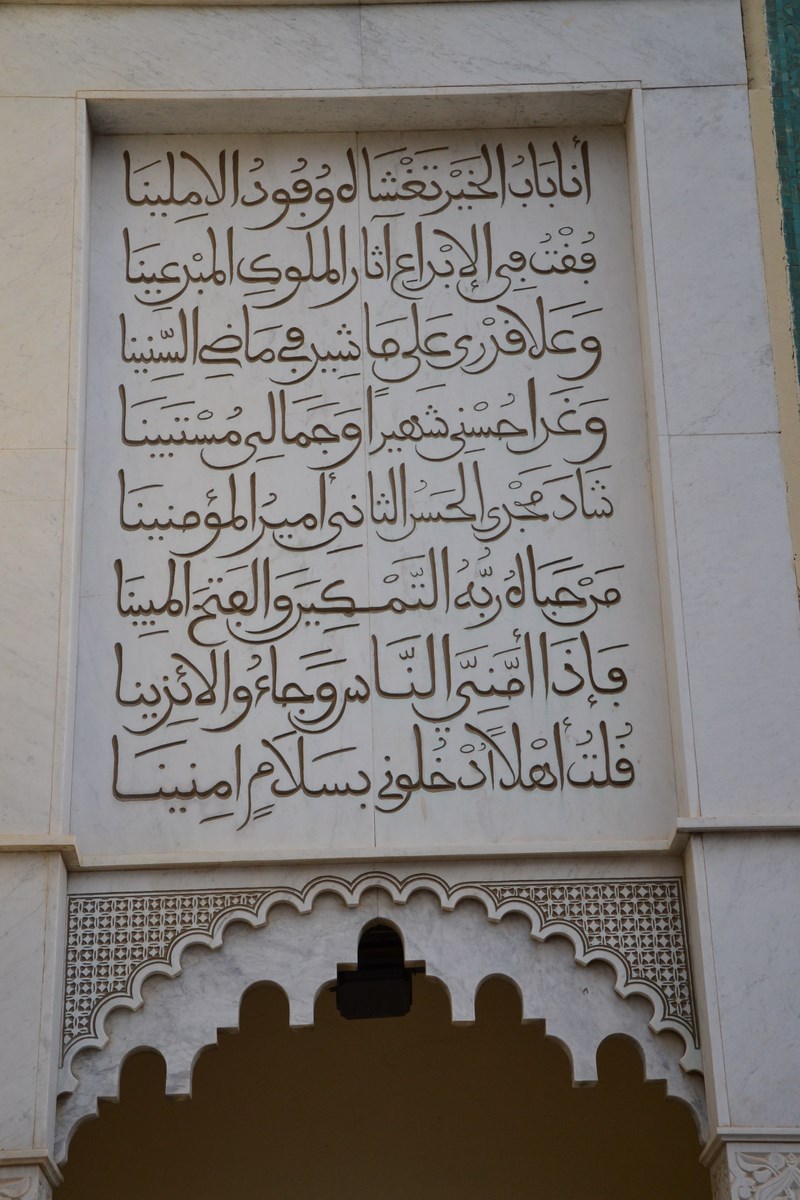 أنا بابُ الخَيْرِ تَغْشَاهُ وُفُودُ الامِلِينَا
فُقْتُ فِي الإبْدَاعِ آثَارَ الملُوكِ المبْدِعِينَا
وَعَلَا قَدْرِى عَلَى مَا شِيدَ فِي مَاضِي السِّنِينا
وَغَدَا حُسْنِي شَهِيراً وَجَمَالِي مُسْتَبِينَا
شَادَ مَجْدِي الحسَنُ الثانِي أميرُ المؤمنيِنَا
مَرْحَبَاهُ رَبُّهُ التَّمْكِينَ وَالفَتحَ المبِينَا
فَإذَا أمَّنِيَ النَّاسُ وَجَاءُوا لائِذِينا
قُلتُ أهْلاً اُدْخُلونِي بسَلَامٍ امِنِينَا